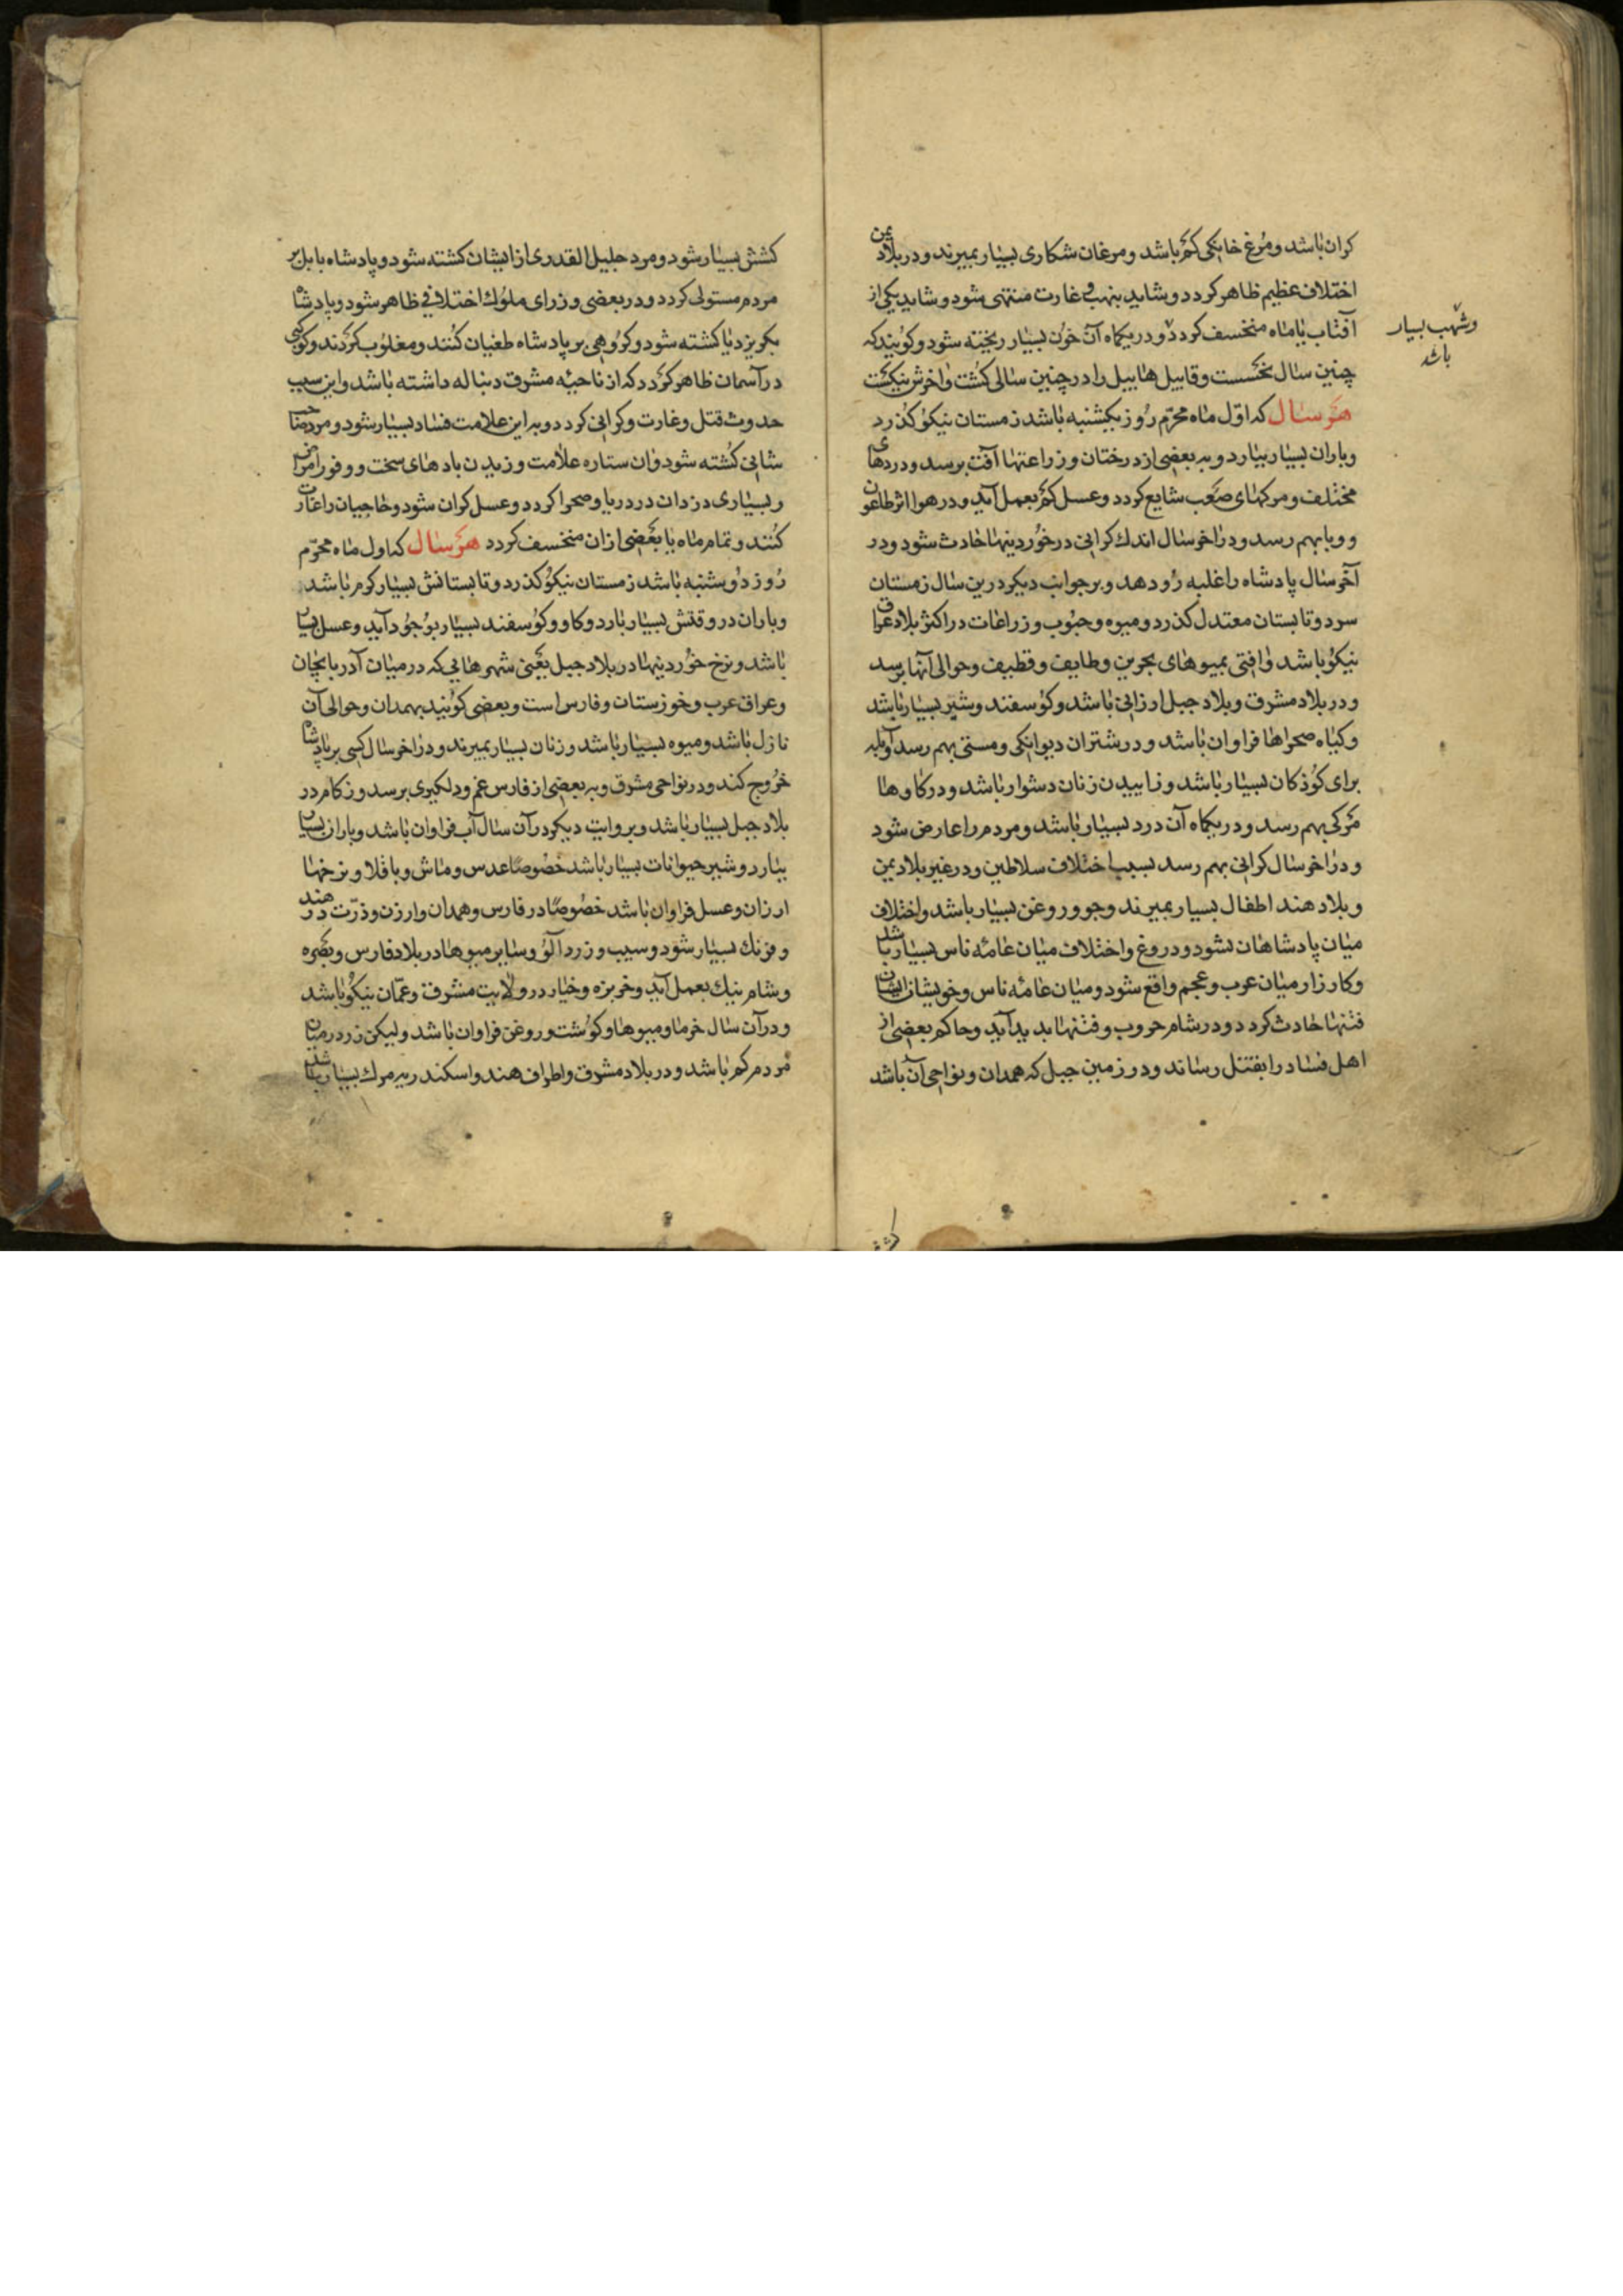 کران باشد و مرغ خانکی کم باشد و مرغان شکاری بسیار بمیرند و در بلاد یمن
اختلاف عظیم ظاهر کردد و شاید بنهب و غارت منتهی شود و شاید یکی از
آفتاب یا ماه منخسف کردد و در یکماه آن خون بسیار ریخته شود و کویند که
و شهب بسیار
باشد
چنین سال نحسست و قابیل هابیل را در چنین سالی کشت و آخرش نیکست
هر سال که اول ماه محرم روز یکشنبه باشد زمستان نیکو کذرد
و باران بسیار ببارد و به بعضی از درختان و زراعتها آفت برسد و دردهای
مختلف و مرکهای صعب شایع کردد و عسل کم بعمل آید و در هوا اثر طاعون
و وبا بهم رسد و در آخر سال اندک کرانی در خوردینها حادث شود و در
آخر سال پادشاه را غلبه رو دهد و بر جوانب دیکر درین سال زمستان
سرد و تابستان معتدل کذرد و میوه و حبوب و زراعات در اکثر بلاد عراق
نیکو باشد و آفتی بمیوهای بحرین و طایف و قطیف و حوالی آنها برسد
و در بلاد مشرق و بلاد جبل ارزانی باشد و کوسفند و شیر بسیار باشد
و کیاه صحراها فراوان باشد و در شتران دیوانکی و مستی بهم رسد و آبله
برای کوذکان بسیار باشد و زاییدن زنان دشوار باشد و در کاوها
مرکی بهم رسد و در یکماه آن درد بسیار باشد و مردم را عارض شود
و در آخر سال کرانی بهم رسد بسبب اختلاف سلاطین و در غیر بلاد یمن
و بلاد هند اطفال بسیار بمیرند و جو و روغن بسیار باشد و اختلاف
میان پادشاهان بشود و دروغ و اختلاف میان عامه ناس بسیار باشد
و کارزار میان عرب و عجم واقع شود و میان عامه ناس و خویشان ایشان
فتنها حادث کردد و در شام حروب و فتنها بدید آید و حاکم بعضی از
اهل فساد را بقتل رساند و در زمین جبل که همدان و نواحی آن باشد
کشش بسیار شود و مرد جلیل القدری از ایشان کشته شود و پادشاه بابل بر
مردم مستولی کردد و در بعضی وزرای ملوک اختلافی ظاهر شود و پادشاه
بکریزد یا کشته شود و کروهی بر پادشاه طغیان کنند و مغلوب کردند و کوکبی
در آسمان ظاهر کردد که از ناحیه مشرق دنباله داشته باشد و این سبب
حدوث قتل و غارت و کرانی کردد و به این علامت فساد بسیار شود و مرد صاحب
شانی کشته شود و آن ستاره علامت وزیدن بادهای سخت و وفور امراض
و بسیاری دزدان در دریا و صحرا کردد و عسل کران شود و حاجیان را غارت
کنند و تمام ماه یا بعضی از آن منخسف کردد هر سال که اول ماه محرم
روز دوشنبه باشد زمستان نیکو کذرد و تابستانش بسیار کرم باشد
و باران در وقتش بسیار بارد و کاو و کوسفند بسیار بوجود آید و عسل بسیار
باشد و نرخ خوردینها در بلاد جبل یعنی شهرهایی که در میان آذربایجان
و عراق عرب و خوزستان و فارس است و بعضی کویند همدان و حوالی آن
نازل باشد و میوه بسیار باشد و زنان بسیار بمیرند و در آخر سال کسی بر پادشاه
خروج کند و در نواحی مشرق و به بعضی از فارس غم و دلکیری برسد و زکام در
بلاد جبل بسیار باشد و بروایت دیکر در آن سال آب فراوان باشد و باران بسیار
ببارد و شیر حیوانات بسیار باشد خصوصا عدس و ماش و باقلا و نرخها
ارزان و عسل فراوان باشد خصوصا در فارس و همدان و ارزن و ذرت در هند
و فرنک بسیار شود و سیب و زردآلو و سایر میوها در بلاد فارس و بصره
و شام نیک بعمل آید و خربزه و خیار در ولایت مشرق و عمان نیکو باشد
و در آن سال خرما و میوها و کوشت و روغن فراوان باشد و لیکن زر در میان
مردم کم باشد و در بلاد مشرق و اطراف هند و اسکندریه مرک بسیار باشد
کشش